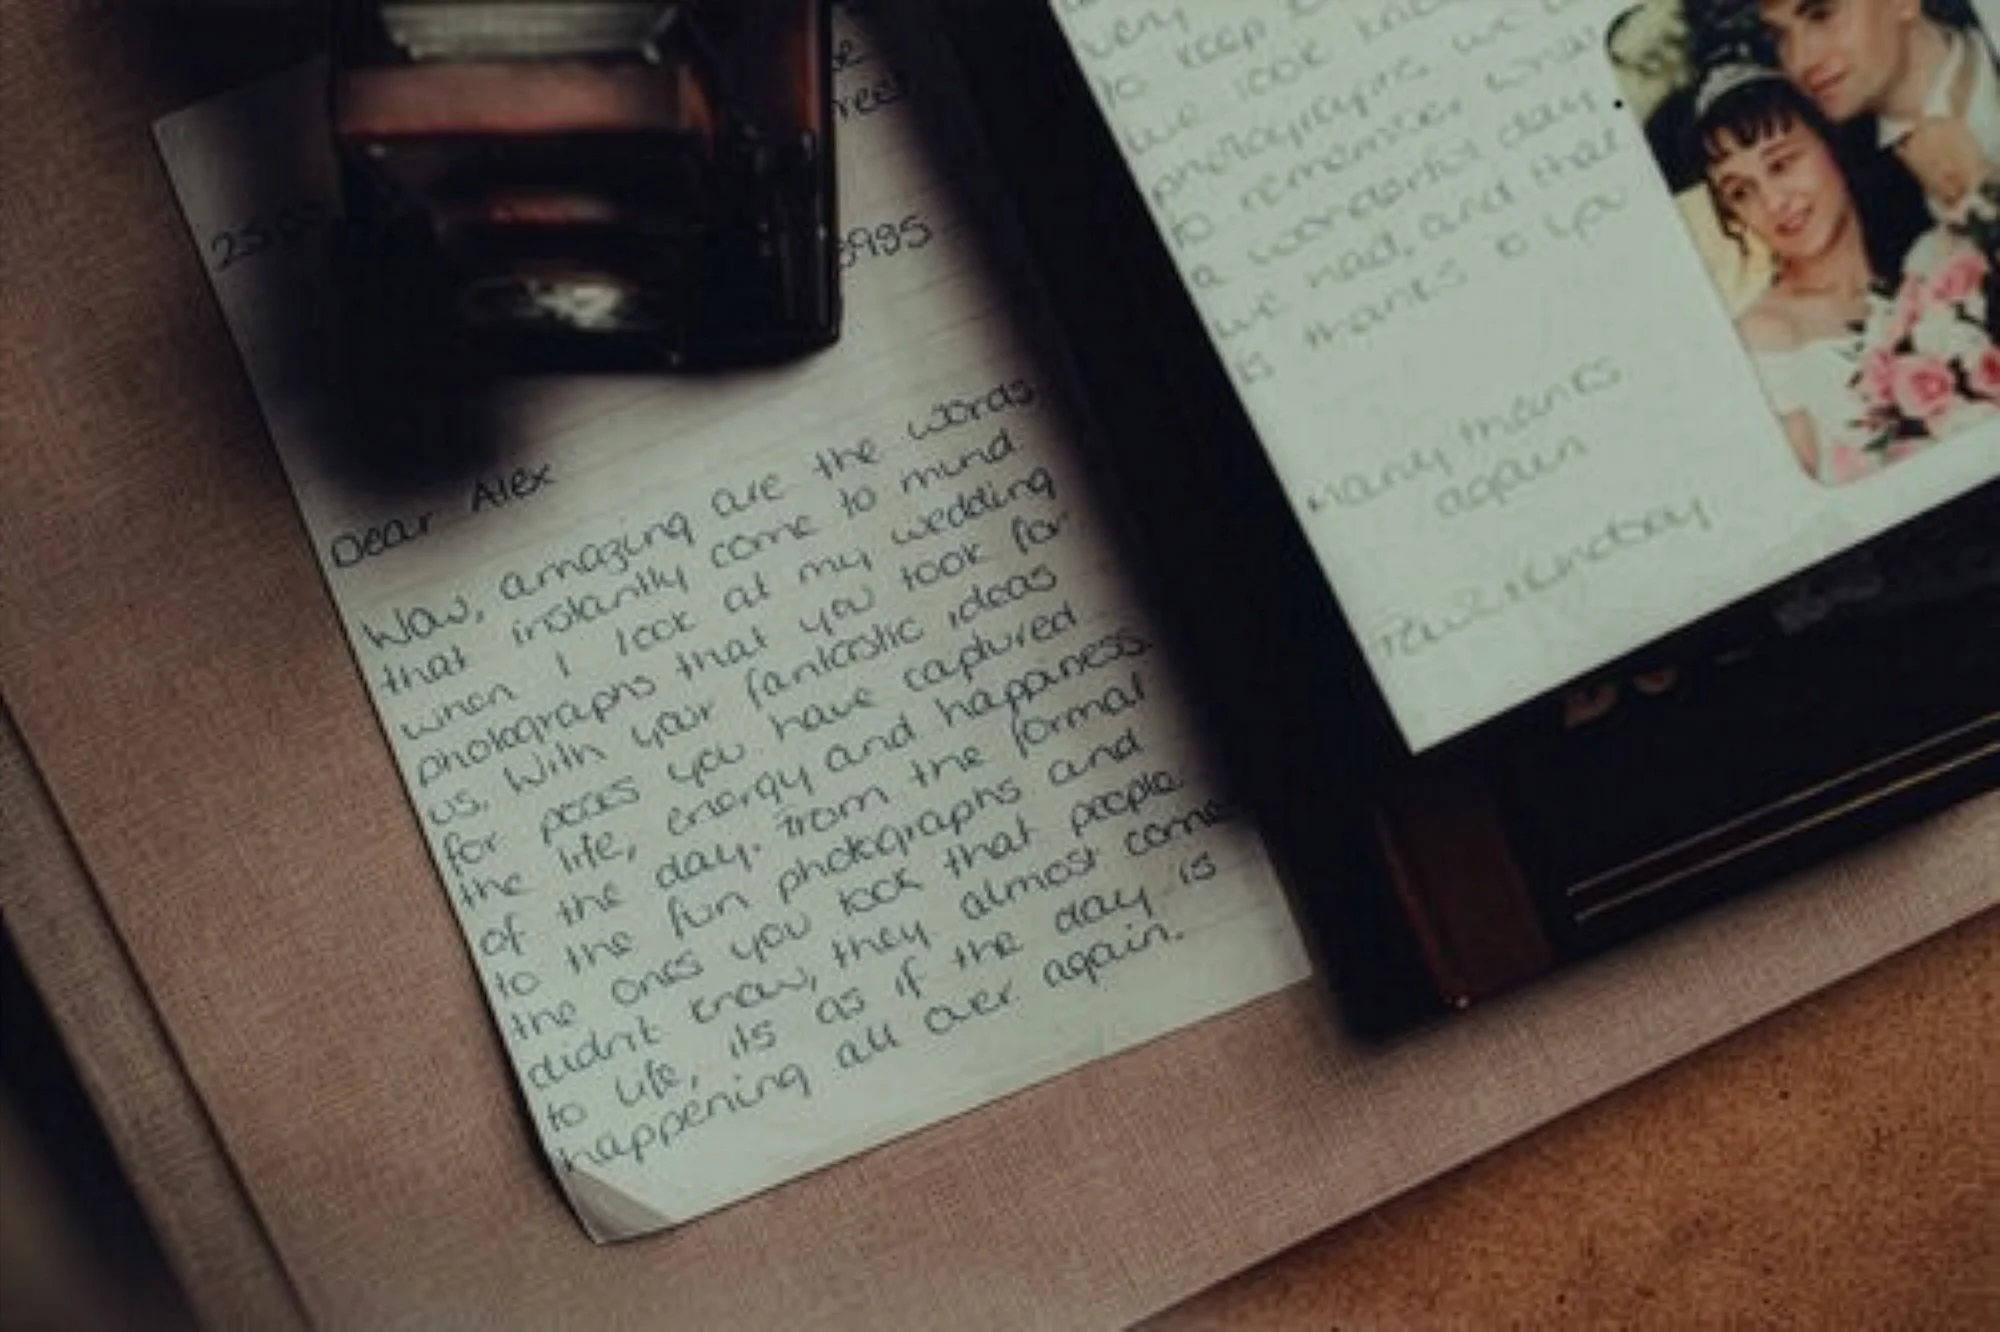 Dear Alex
Wow, amazing are the words
that instantly come to mind
when I look at my wedding
photographs that you took for
us. With your fantastic ideas
for poses you have captured
the life, energy and happiness
of the day. From the formal
to the fun photographs and
the ones you took that people
didn't know, they almost come
to life, its as if the day is
happening all over again.
very
to keep
we look
photographs we
to remember what
a wonderful day
we had, and that
is thanks to you
Many thanks
again
Paul & Lindsay.